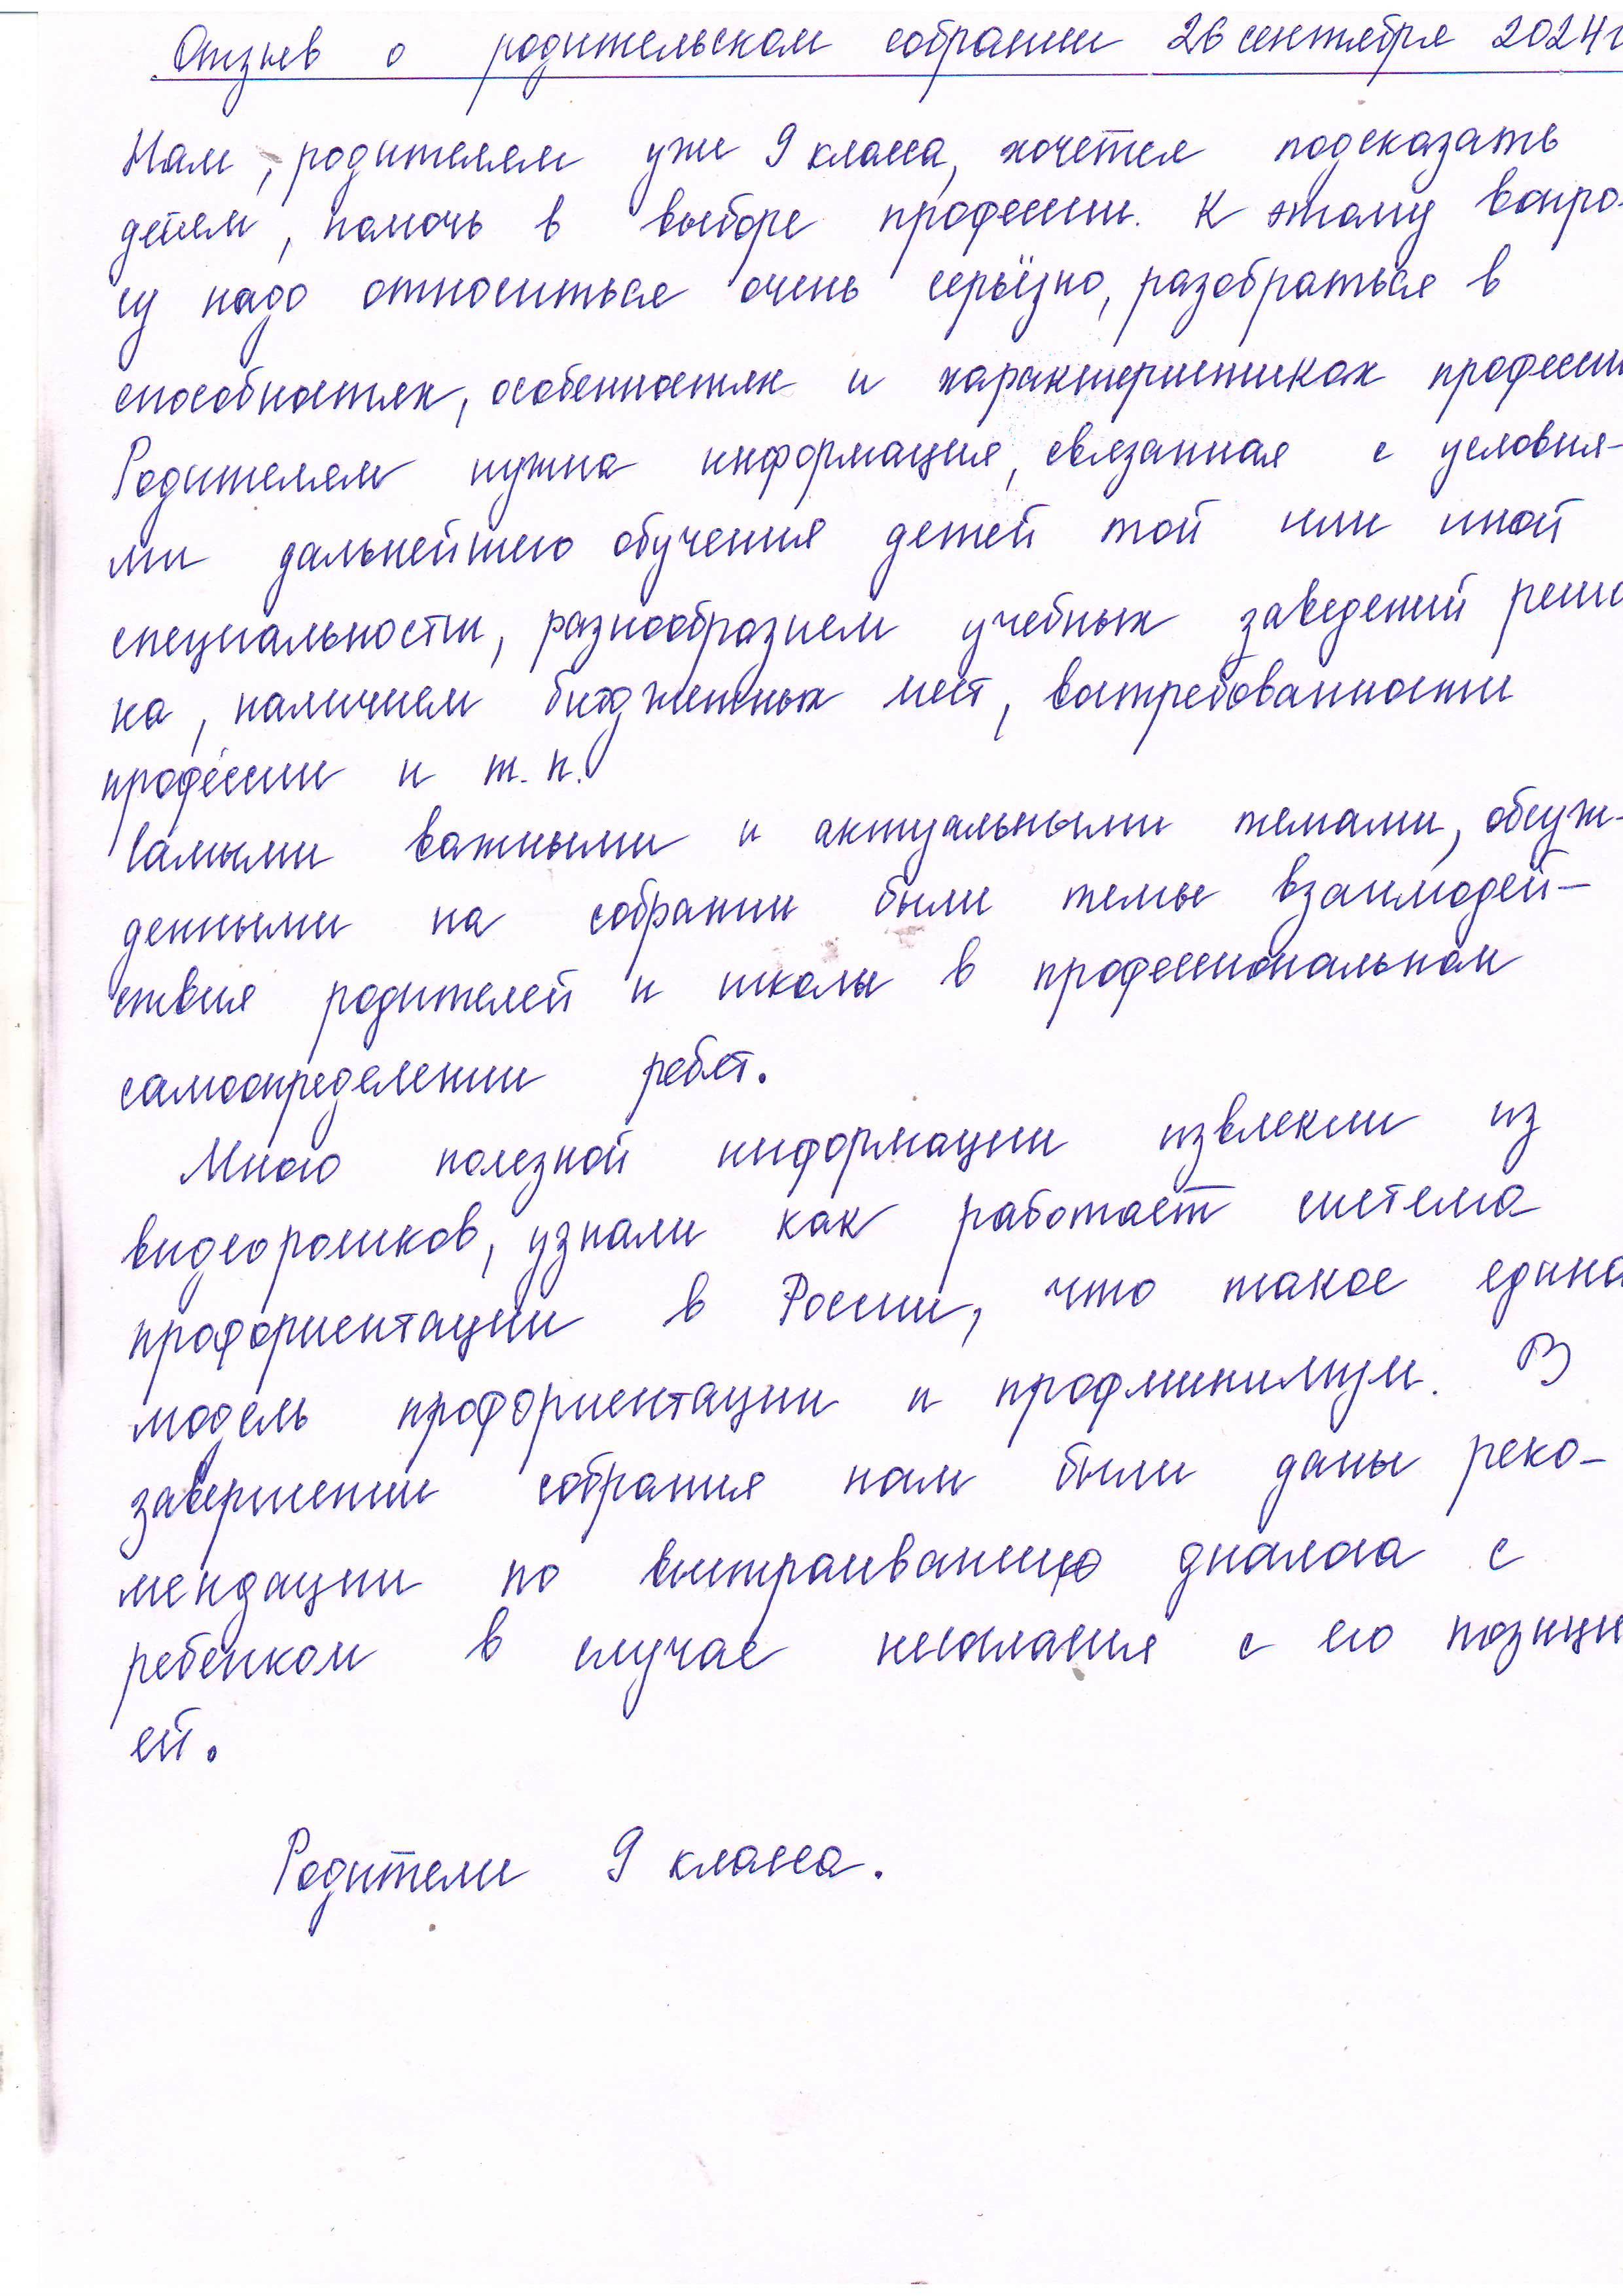 Отзыв о родительском собрании 26 сентября 2024г
Нам, родителям уже 9 класса, хочется подсказать
детям, помочь в выборе профессии. К этому вопро-
су надо относиться очень серьёзно, разобраться в
способностях, особенностях и характеристиках професси
Родителям нужна информация, связанная с условия-
ми дальнейшего обучения детей той или иной
специальности, разнообразием учебных заведений регио
на, наличием бюджетных мест, востребованности
профессии и т.п.
Самыми важными и актуальными темами, обсуж-
денными на собрании были темы взаимодей-
ствия родителей и школы в профессиональном
самоопределении ребят.
Много полезной информации извлекли из
видеороликов, узнали как работает система
профориентации в России, что такое едина
модель профориентации и профминимум. В
завершении собрания нам были даны реко-
мендации по выстраиванию диалога с
ребенком в случае несогласия с его позици
ей.
Родители 9 класса.